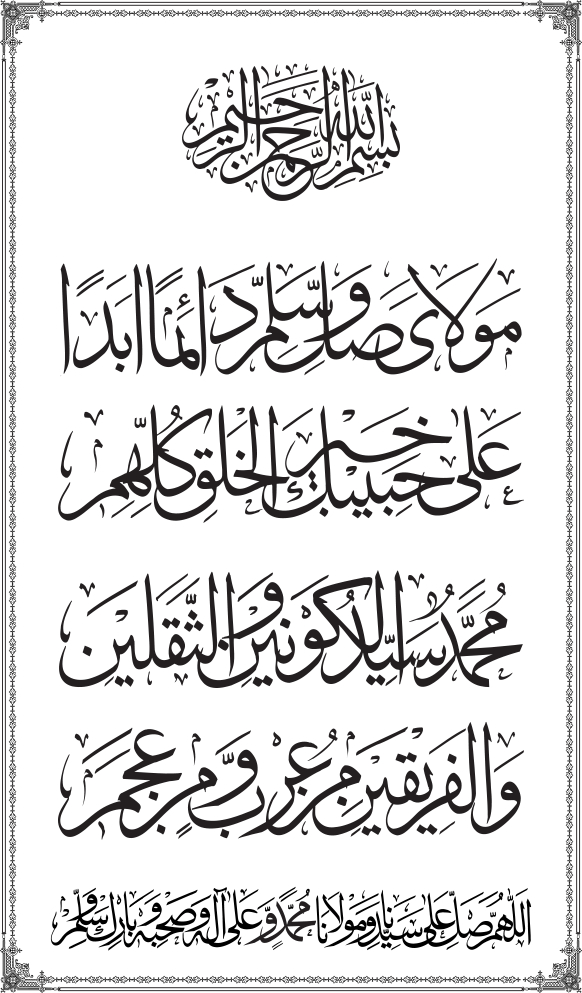 بِسْمِ اللهِ الرَّحْمٰنِ الرَّحِيْمِ
مَوْلَاىَ صَلِّ وَسَلِّمْ دَائِمًا اَبَدًا
عَلٰى حَبِيْبِكَ خَيْرِ الْخَلْقِ كُلِّهِمِ
مُحَمَّدٌ سَيِّدُ الْكَوْنَيْنِ وَالثَّقَلَيْنِ
وَالْفَرِيْقَيْنِ مِنْ عُرْبٍ وَّمِنْ عَجَمِ
اَللّٰهُمَّ صَلِّ عَلٰى سَيِّدِنَا وَمَوْلَانَا مُحَمَّدٍ وَّعَلٰى آلِهٖ وَصَحْبِهٖ وَبَارِكْ وَسَلِّمْ